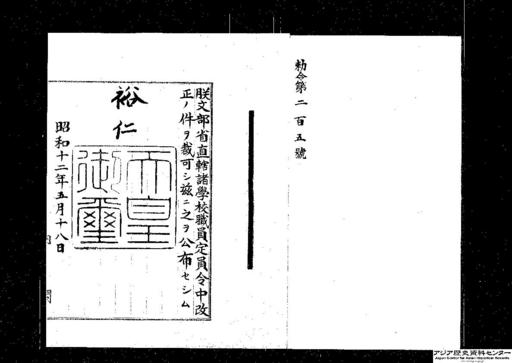 勅令第二百五號
朕文部省直轄諸學校職員定員令中改
正ノ件ヲ裁可シ茲ニ之ヲ公布セシム
裕仁
天皇
御璽
昭和十二年五月十八日
アジア歴史資料センター
Japan Center for Asian Historical Records